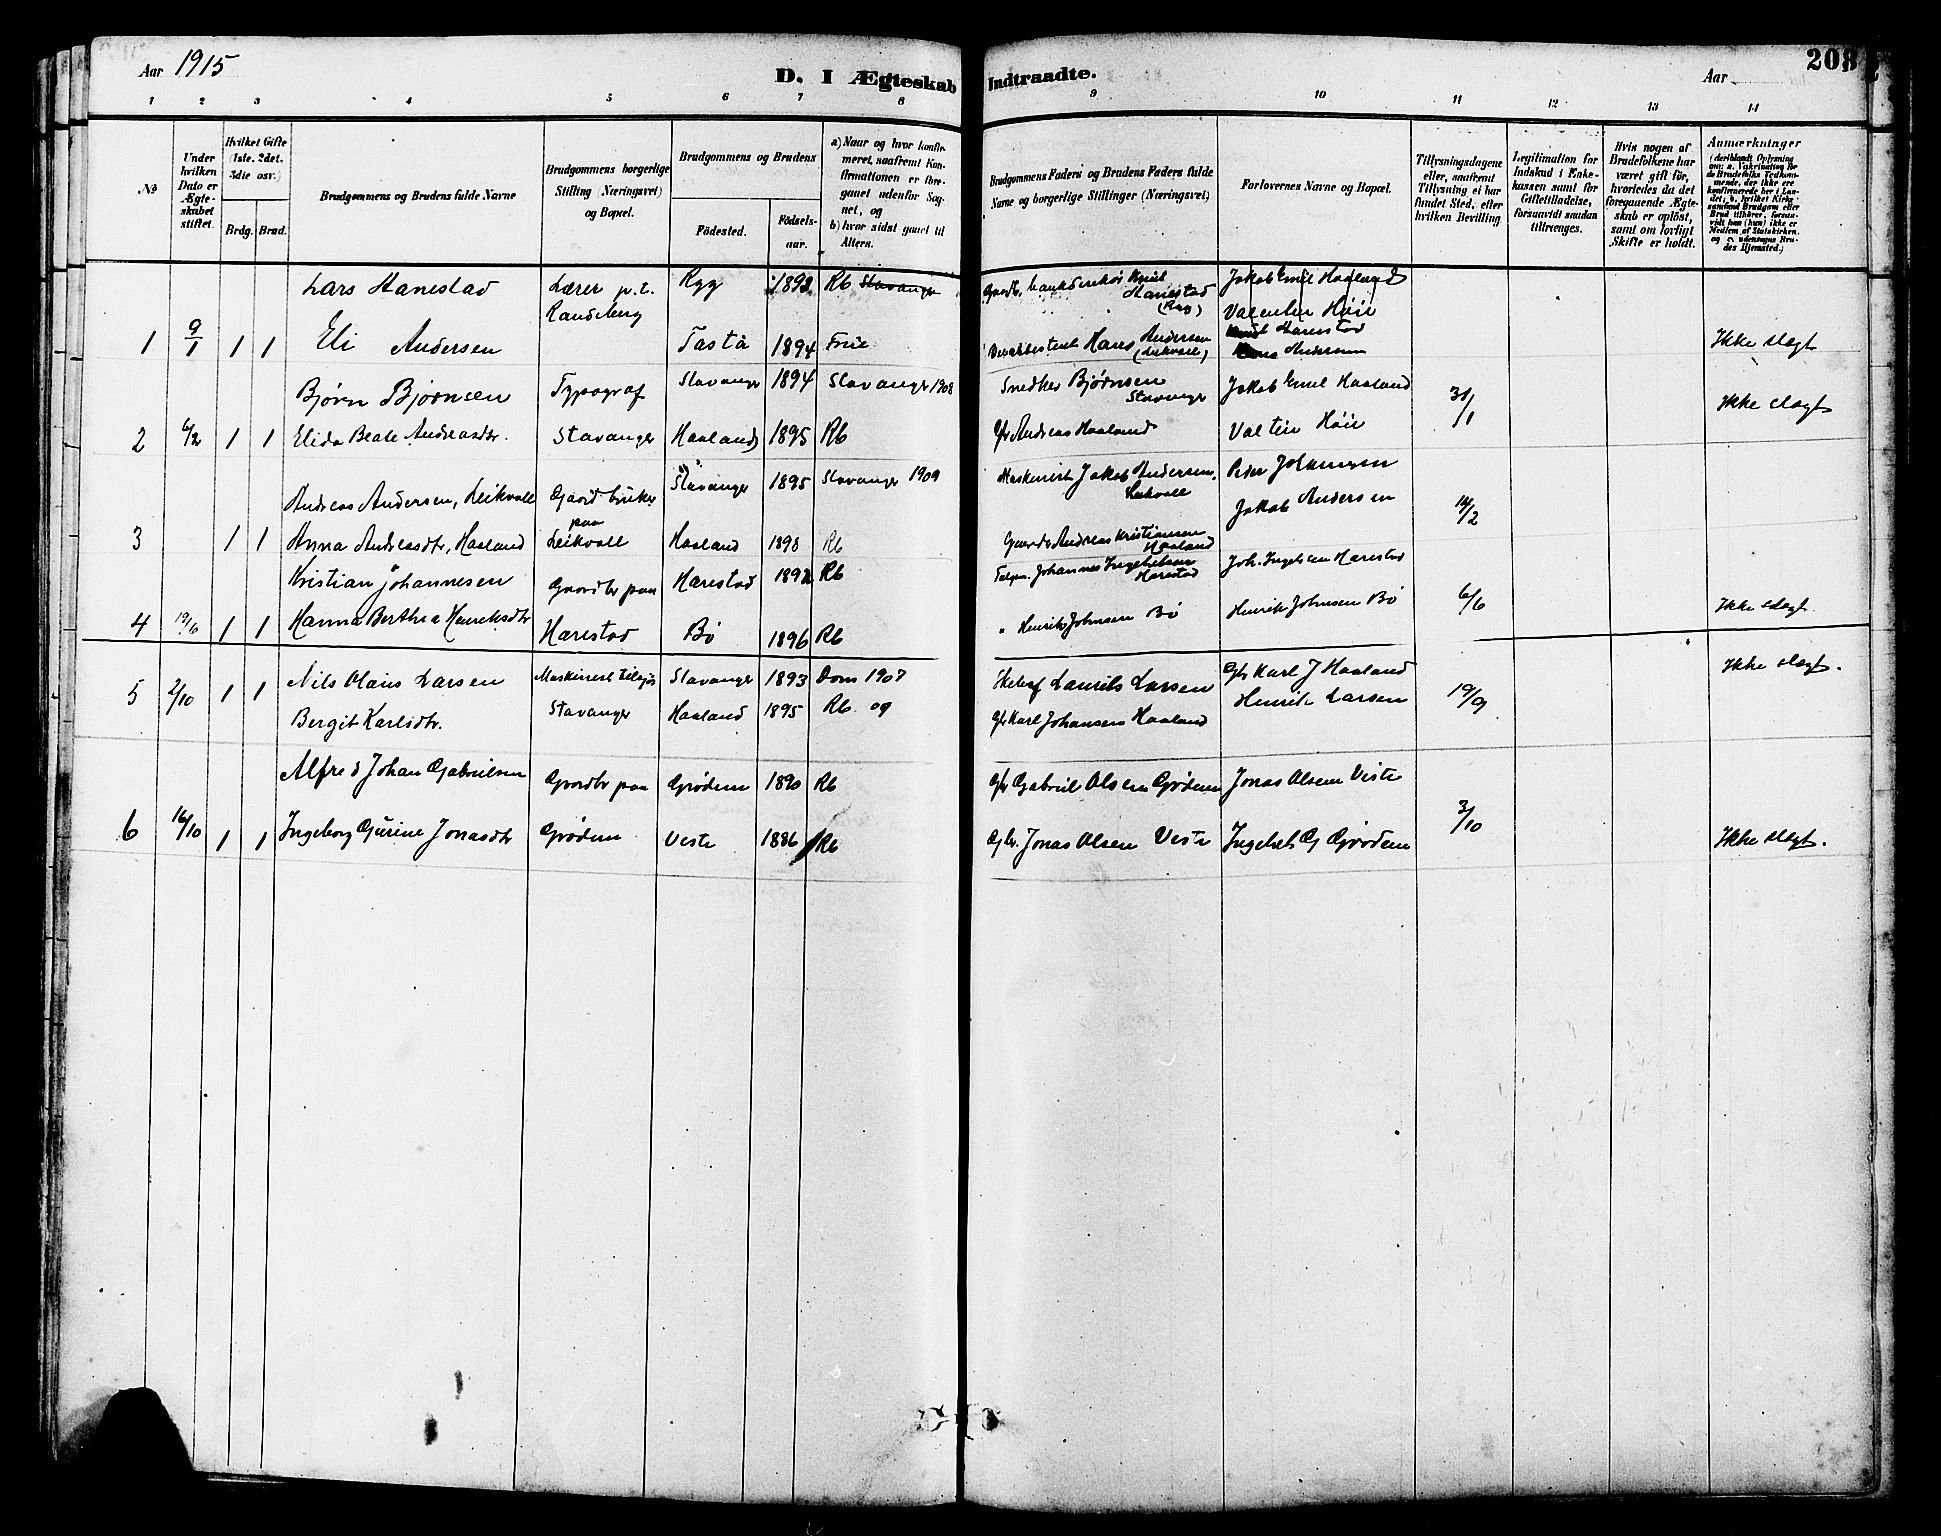 Aar 1915
D. I Ægteskab Indtraadte.
Aar
208
1 2 3 4 5 6 7 8 9 10 11 12 13 14
No
Under hvilken Dato er Ægteskabet stiftet.
Hvilket Gifte (1ste. 2det. 3die osv.)
Brdg. Brud.
Brudgommens og Brudens fulde Navne
Brudgommens borgerlige Stilling (Næringsvei) og Bopæl.
Brudgommens og Brudens
Födested.
Födselsaar.
a) Naar og hvor konfirmeret, saafremt Konfirmationen er foregaaet udenfor Sognet, og
b) hvor sidst gaaet til Alters.
Brudgommens Faders og Brudens Faders fulde Navne og borgerlige Stillinger (Næringsvei)
Forlovernes Navne og Bopæl.
Tillysningsdagene eller, saafremt Tillysning ei har fundet Sted, efter hvilken Bevilling
Legitimation for Indskud i Enkekassen samt for Giftetilladelse, forsaavidt saadan tiltrænges.
Hvis nogen af Brudefolkene har været gift før, hvorledes da det foregaaende Ægteskab er oplöst, samt om lovligt Skifte er holdt.
Anmærkninger
Lars Harestad Lærer p.t. Ryg 1892 Rb Stavanger Knut Harestad (Ryg) Jakob Emil Haaland
Randeberg Valentin Höie
Knut Harestad
1 9/1 1 1 Eli Andersen Tasta 1894 Frue Hans Andersen (Leikvoll) Hans Andersen Ikke slegt
Bjørn Bjørnsen Typograf Stavanger 1894 Stavanger 1908 Snedker Bjørnsen Stavanger Jakob Emil Haaland 31/1
2 6/2 1 1 Elida Beate Andreasdtr. Stavanger Haaland 1895 Rb Gbr Andreas Haaland Valtin Höie Ikke slegt
Andreas Andersen, Leikvoll Gaardbruker Stavanger 1895 Stavanger 1909 Maskinist Jakob Andersen, Leikvoll Peder Johannesen
Jakob Andersen 14/2
3 1 1 Anna Andreasdtr, Haaland paa Leikvoll Haaland 1898 Rb Gaardb Andreas Kristiansen Haaland
Kristian Johannesen Gaardbr paa Harestad 1892 Rb Johannes Ingebretsen Harestad Joh. Ingebretsen Harestad
4 19/6 1 1 Hanna Berthea Henriksdtr Harestad Bø 1896 Rb " Henrik Johnsen Bø Henrik Johnsen Bø 6/6 Ikke slegt
5 2/10 1 1 Nils Olaus Larsen Maskinist tilsjøs Stavanger 1893 Dom 1907 Laurits Larsen Gbr Karl J Haaland 19/9 Ikke slegt.
Bergit Karlsdtr. Stavanger Haaland 1895 Rb. og Gbr Karl Johansen Haaland Henrik Larsen
Alfred Johan Gabrielsen Gaardbr paa Grødem 1890 Rb Gbr Gabriel Olsen Grødem Jonas Olsen Viste
6 16/10 1 1 Ingeborg Gurine Jonasdtr Grødem Viste 1886 Rb Gbr. Jonas Olsen Viste Ingebret G Grødem 3/10 Ikke slegt.